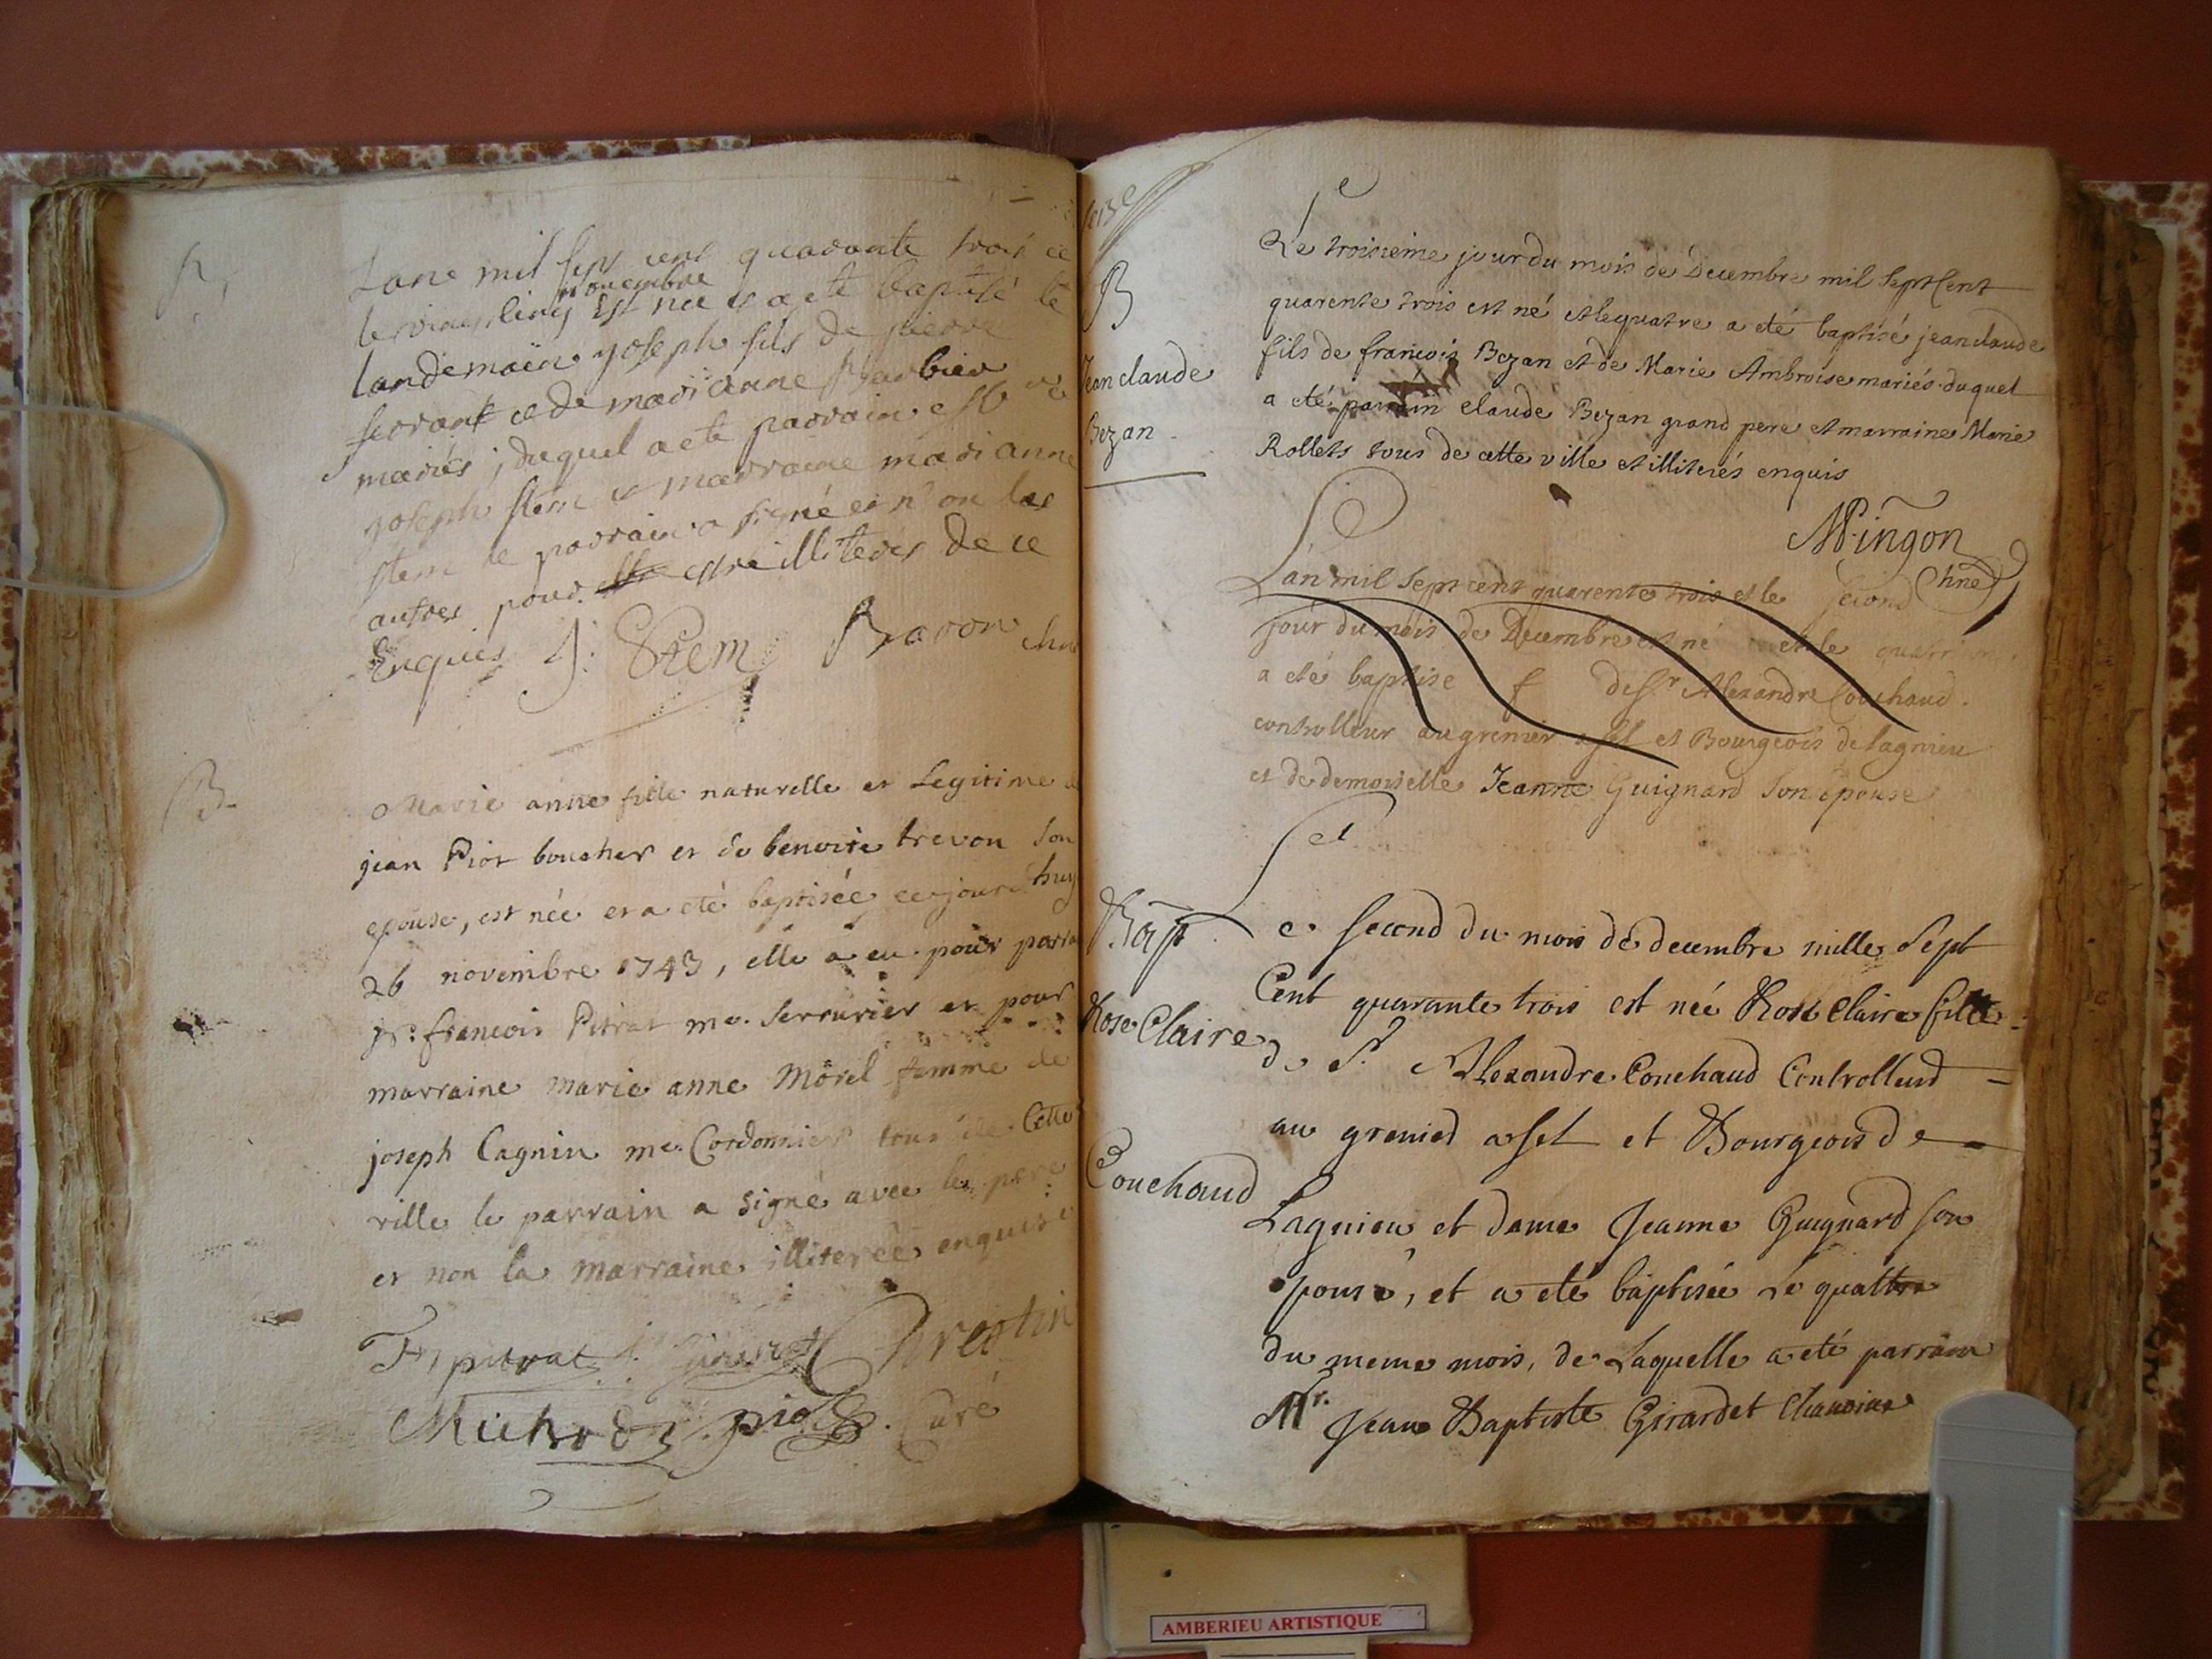 B
Lane mil sept cent quaronte trois et
le vingt cinq novembre Est nee et a ete baptisé le
landemain yoseph fils de pierre
ferrant et de marianne Barbier
mariés, duquel a ete parrain
yoseph stem et marraine marianne
stem le parrain a signé et non les
autres pour estre illiteres de ce
Enquis J: Stem Baron chne
B
Marie anne fille naturelle et Legitime de
jean Piot boucher et de benoite trevon son
epouse, est née et a eté baptisée ce jourd'huy
26 novembre 1743, elle a eu pour parrain
Sr. francois Pitrat me. Serrurier et pour
marraine marie anne Morel femme de
joseph Cagnin me. Cordonnier tous de Cette
ville le parrain a signé avec le pere
et non la marraine illiterée enquise
F pitrat Chrestin
Michod piot Curé
B
Jean claude
Bezan
Le troisieme jour du mois de Decembre mil Sept Cent
quarente trois est né et le quatre a eté baptisé jean claude
fils de francois Bezan et de Marie Ambroise mariés duquel
a eté parrain claude Bezan grand pere et marraine Marie
Rollets tous de cette ville et illiterés enquis
Mingon
chne
L'an mil Sept cent quarente trois et le second
jour du mois de Decembre est né et le quatrieme
a eté baptise f de Sr Alexandre Couchaud
controlleur au grenier a sel et Bourgeois de lagnieu
et de demoiselle Jeanne Guignard Son epouse
Bap
Rose Claire
Couchaud
Le second du mois de decembre mille Sept
Cent quarante trois est née Rose Claire fille
de Sr. Alexandre Couchaud Controlleur
au grenier a sel et Bourgeois de
Lagnieu et dame Jeanne Guignard son
epouse, et a eté baptisée Le quattre
du meme mois, de Laquelle a eté parrain
Mr. Jean Baptiste Girardet Chanoine
AMBERIEU ARTISTIQUE